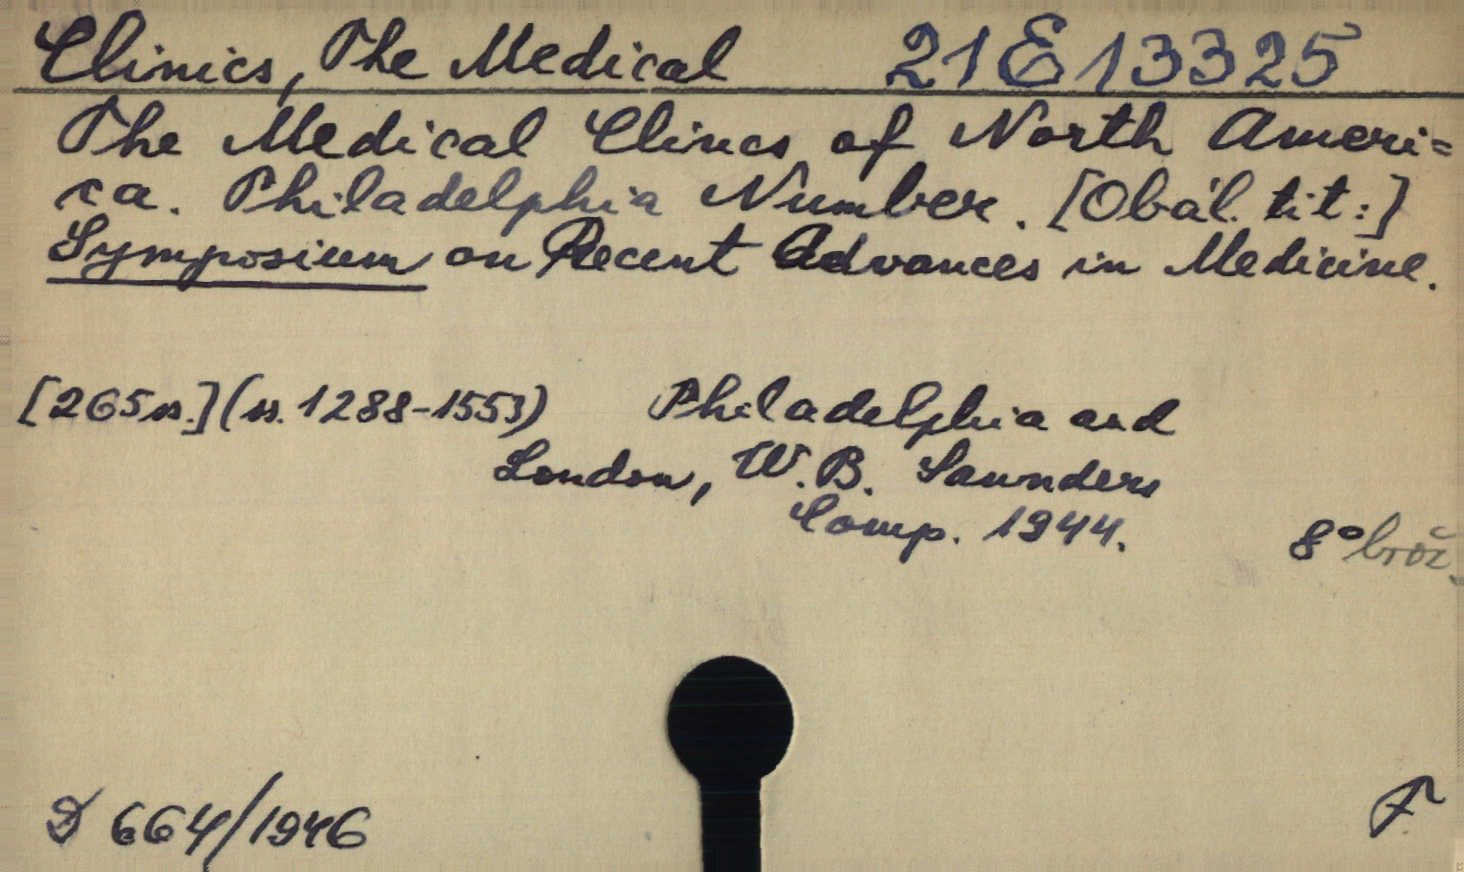 Clinics, The Medical 21 E 13325
The Medical Clincs of North Ameri=
ca. Philadelphia Number. [Obál. tit:]
Symposium on Recent Advances in Medicine.
[265 ss.] (ss. 1288-1553) Philadelphia and
London, W. B. Saunders
Comp. 1944.
8° brož.
D 664/1946
F